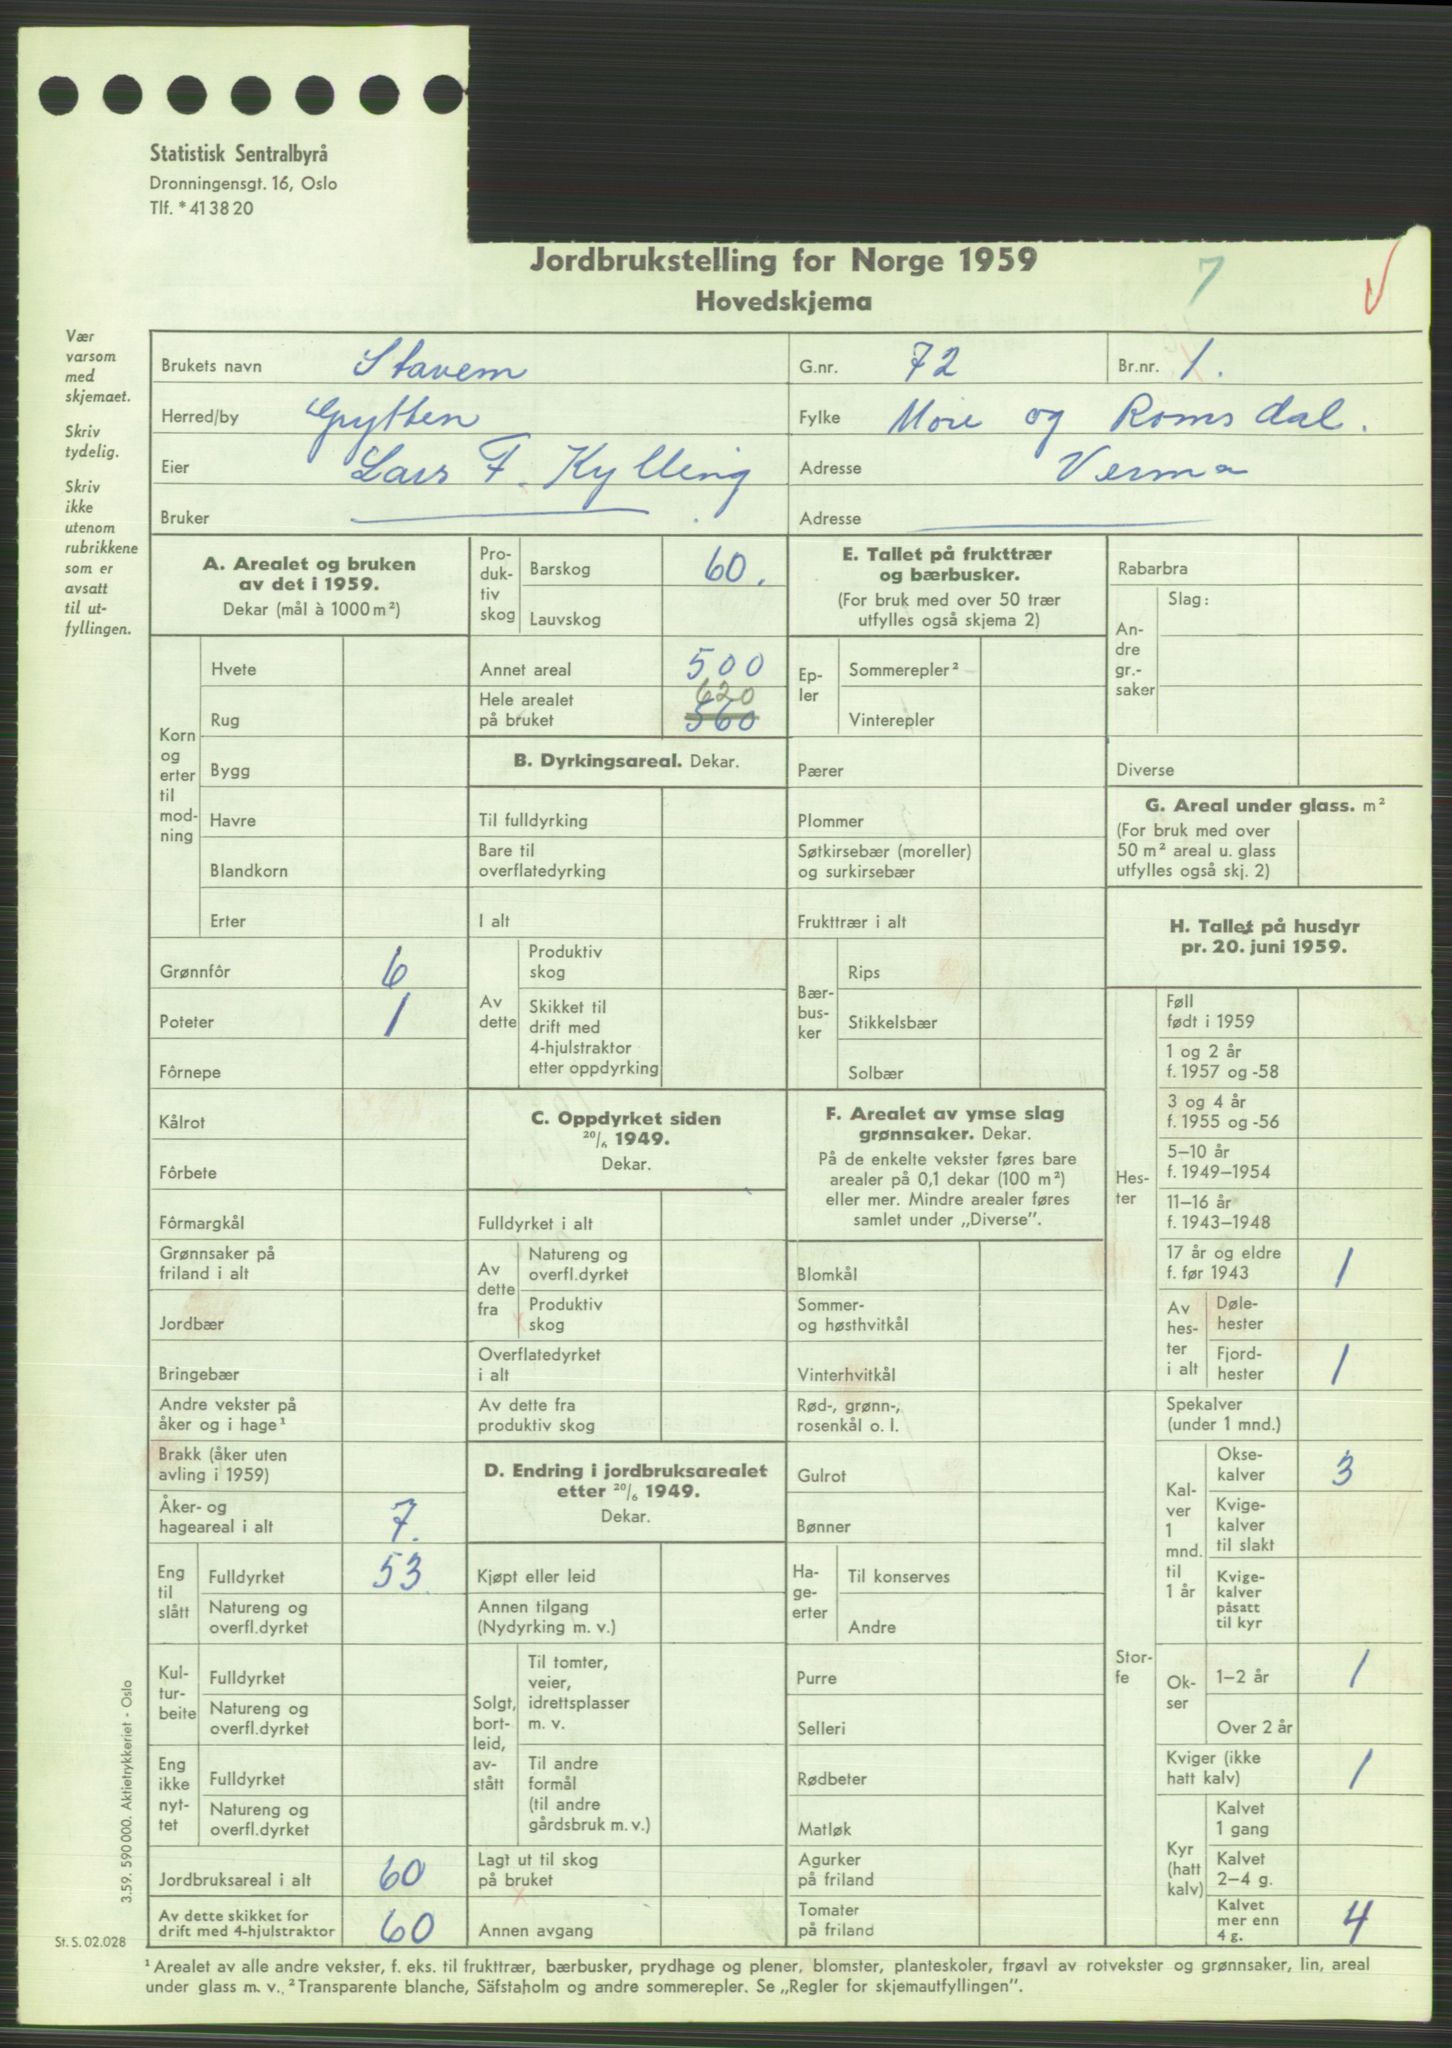 Statistisk Sentralbyrå
Dronningensgt. 16, Oslo
Tlf. *41 38 20
Jordbrukstelling for Norge 1959
7
Hovedskjema
Vær
varsom
med
skjemaet.
Skriv
tydelig.
Skriv
ikke
utenom
rubrikkene
som er
avsatt
til ut-
fyllingen.
Brukets navn Stavem
G.nr. 72
Br.nr. 1.
Herred/by Grytten
Fylke Møre og Romsdal.
Eier Lars F. Kylling
Adresse Verma
Bruker
Adresse
A. Arealet og bruken
av det i 1959.
Dekar (mål à 1000 m²)
Korn
og
erter
til
mod-
ning
Hvete
Rug
Bygg
Havre
Blandkorn
Erter
Grønnfôr 6
Poteter 1
Fôrnepe
Kålrot
Fôrbete
Fôrmargkål
Grønnsaker på
friland i alt
Jordbær
Bringebær
Andre vekster på
åker og i hage¹
Brakk (åker uten
avling i 1959)
Åker- og
hageareal i alt 7.
Eng
til
slått
Fulldyrket 53
Natureng og
overfl.dyrket
Kul-
tur-
beite
Fulldyrket
Natureng og
overfl.dyrket
Eng
ikke
nyt-
tet
Fulldyrket
Natureng og
overfl.dyrket
Jordbruksareal i alt 60
Av dette skikket for
drift med 4-hjulstraktor 60
Pro-
duk-
tiv
skog
Barskog 60.
Lauvskog
Annet areal 500
Hele arealet 620
på bruket 560
B. Dyrkingsareal. Dekar.
Til fulldyrking
Bare til
overflatedyrking
I alt
Av
dette
Produktiv
skog
Skikket til
drift med
4-hjulstraktor
etter oppdyrking
C. Oppdyrket siden
20/6 1949.
Dekar.
Fulldyrket i alt
Av
dette
fra
Natureng og
overfl.dyrket
Produktiv
skog
Overflatedyrket
i alt
Av dette fra
produktiv skog
D. Endring i jordbruksarealet
etter 20/6 1949.
Dekar.
Kjøpt eller leid
Annen tilgang
(Nydyrking m. v.)
Solgt,
bort-
leid,
av-
stått
Til tomter,
veier,
idrettsplasser
m. v.
Til andre
formål
(til andre
gårdsbruk m. v.)
Lagt ut til skog
på bruket
Annen avgang
E. Tallet på frukttrær
og bærbusker.
(For bruk med over 50 trær
utfylles også skjema 2)
Ep-
ler
Sommerepler²
Vinterepler
Pærer
Plommer
Søtkirsebær (moreller)
og surkirsebær
Frukttrær i alt
Bær-
bus-
ker
Rips
Stikkelsbær
Solbær
F. Arealet av ymse slag
grønnsaker. Dekar.
På de enkelte vekster føres bare
arealer på 0,1 dekar (100 m²)
eller mer. Mindre arealer føres
samlet under „Diverse”.
Blomkål
Sommer-
og høsthvitkål
Vinterhvitkål
Rød-, grønn-,
rosenkål o. l.
Gulrot
Bønner
Ha-
ge-
erter
Til konserves
Andre
Purre
Selleri
Rødbeter
Matløk
Agurker
på friland
Tomater
på friland
Rabarbra
An-
dre
gr.-
saker
Slag:
Diverse
G. Areal under glass. m²
(For bruk med over
50 m² areal u. glass
utfylles også skj. 2)
H. Tallet på husdyr
pr. 20. juni 1959.
Hes-
ter
Føll
født i 1959
1 og 2 år
f. 1957 og -58
3 og 4 år
f. 1955 og -56
5–10 år
f. 1949–1954
11–16 år
f. 1943–1948
17 år og eldre
f. før 1943 1
Av
hes-
ter
i alt
Døle-
hester
Fjord-
hester 1
Stor-
fe
Spekalver
(under 1 mnd.)
Kal-
ver
1
mnd.
til
1 år
Okse-
kalver 3
Kvige-
kalver
til slakt
Kvige-
kalver
påsatt
til kyr
Ok-
ser
1–2 år 1
Over 2 år
Kviger (ikke
hatt kalv) 1
Kyr
(hatt
kalv)
Kalvet
1 gang
Kalvet
2–4 g.
Kalvet
mer enn
4 g. 4
3.59. 590 000. Aktietrykkeriet - Oslo
St. S. 02.028
¹ Arealet av alle andre vekster, f. eks. til frukttrær, bærbusker, prydhage og plener, blomster, planteskoler, frøavl av rotvekster og grønnsaker, lin, areal
under glass m. v. ² Transparente blanche, Säfstaholm og andre sommerepler. Se „Regler for skjemautfyllingen”.